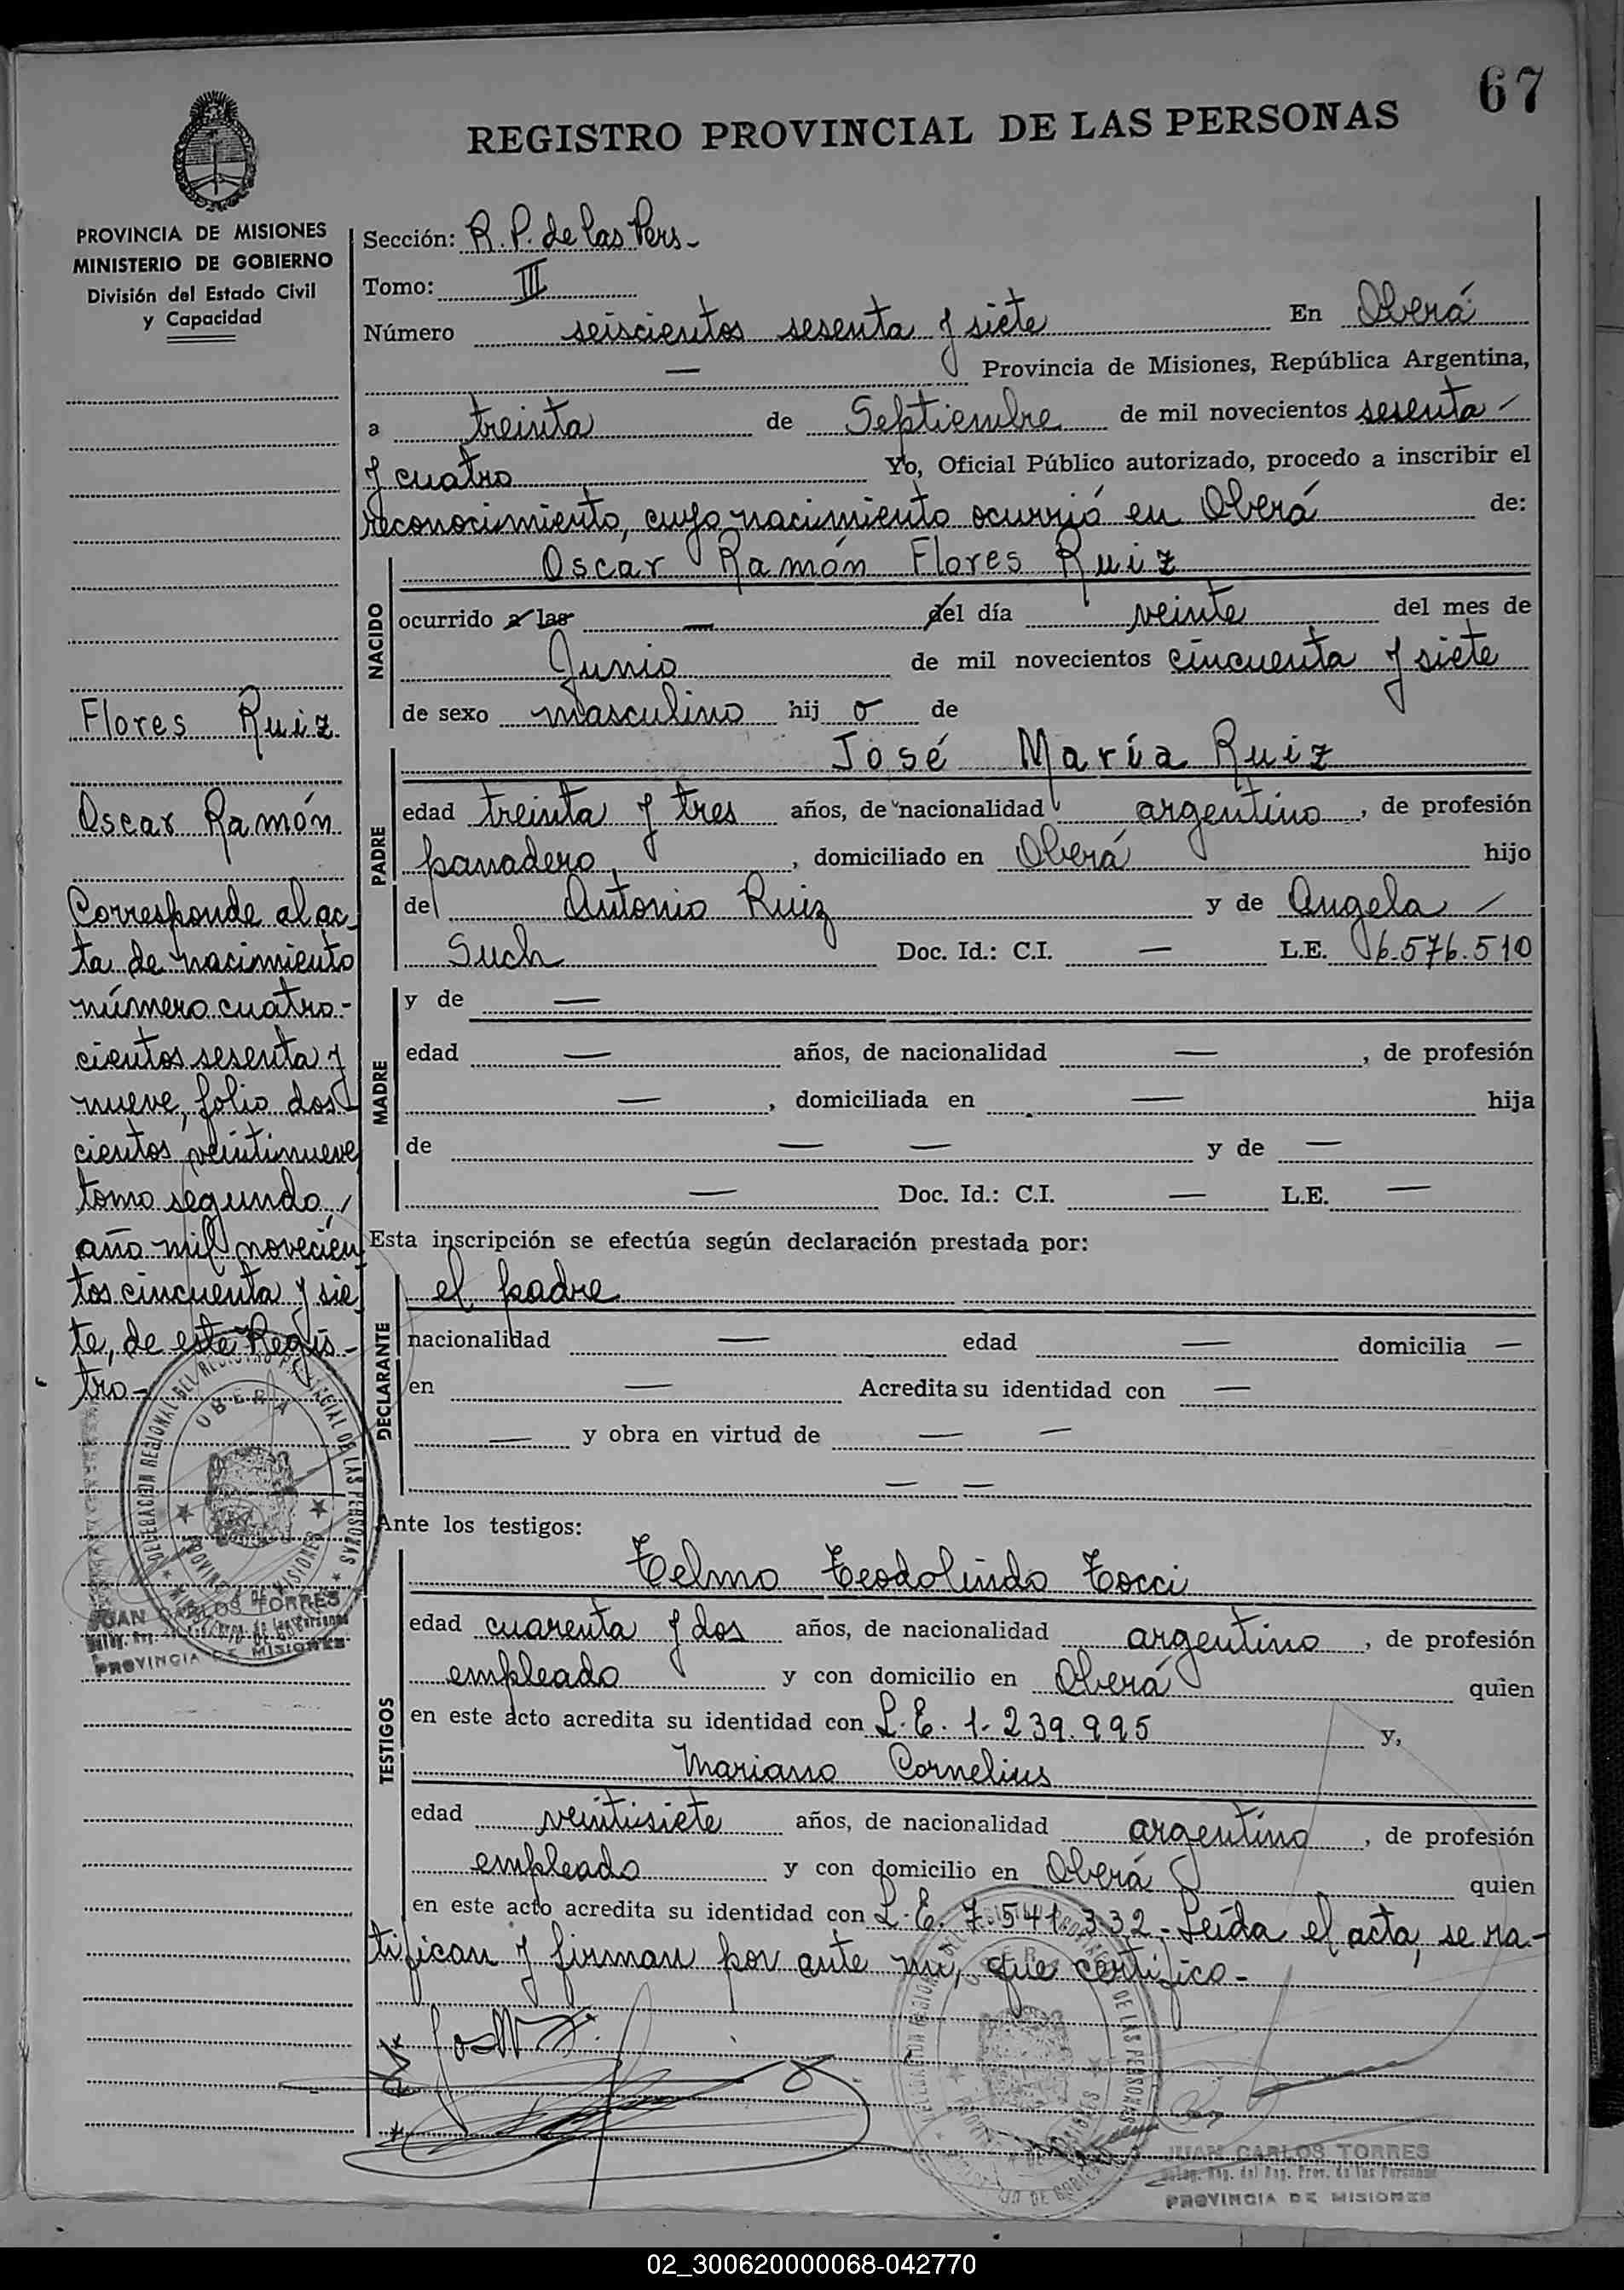 67
REGISTRO PROVINCIAL DE LAS PERSONAS
PROVINCIA DE MISIONES
MINISTERIO DE GOBIERNO
División del Estado Civil
y Capacidad
Flores Ruiz
Oscar Ramón
Corresponde al ac-
ta de nacimiento
número cuatro-
cientos sesenta y
nueve, folio dos-
cientos veintinueve
tomo segundo,
año mil novecien
tos cincuenta y sie
te, de este Regis-
tro-
DELEGACION REGIONAL DEL REGISTRO PROVINCIAL DE LAS PERSONAS
OBERA
PROVINCIA DE MISIONES
JUAN CARLOS TORRES
PROVINCIA DE MISIONES
Sección: R. P. de las Pers-
Tomo: III
Número seiscientos sesenta y siete En Oberá
— Provincia de Misiones, República Argentina,
a treinta de Septiembre de mil novecientos sesenta
y cuatro Yo, Oficial Público autorizado, procedo a inscribir el
reconocimiento, cuyo nacimiento ocurrió en Oberá de:
NACIDO
Oscar Ramón Flores Ruiz
ocurrido a las — del día veinte del mes de
Junio de mil novecientos cincuenta y siete
de sexo masculino hijo de
PADRE
José María Ruiz
edad treinta y tres años, de nacionalidad argentino, de profesión
panadero, domiciliado en Oberá hijo
de Antonio Ruiz y de Angela
Such Doc. Id.: C.I. — L.E. 6.576.510
MADRE
y de —
edad — años, de nacionalidad —, de profesión
—, domiciliada en — hija
de — — y de —
— Doc. Id.: C.I. — L.E. —
Esta inscripción se efectúa según declaración prestada por:
DECLARANTE
el padre
nacionalidad — edad — domicilia —
en — Acredita su identidad con —
— y obra en virtud de — —
— —
Ante los testigos:
TESTIGOS
Telmo Teodolindo Tocci
edad cuarenta y dos años, de nacionalidad argentino, de profesión
empleado y con domicilio en Oberá quien
en este acto acredita su identidad con L.E. 1.239.995 y,
Mariano Cornelius
edad veintisiete años, de nacionalidad argentino, de profesión
empleado y con domicilio en Oberá quien
en este acto acredita su identidad con L.E. 7.541.332.- Leída el acta, se ra-
tifican y firman por ante mi, que certifico-
JUAN CARLOS TORRES
Deleg. Reg. del Reg. Prov. de las Personas
PROVINCIA DE MISIONES
02_300620000068-042770